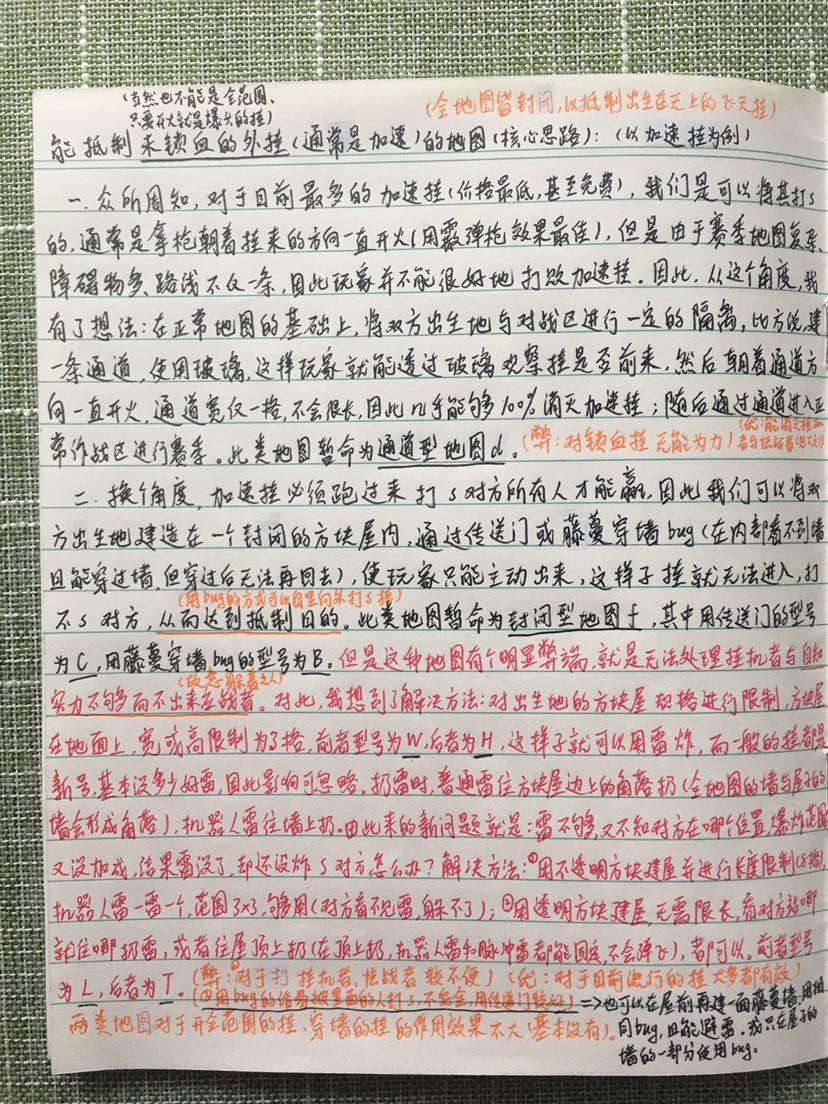 (当然也不能是全范围、
只要开火就是爆头的挂)
(全地图皆封闭,以抵制出生在天上的飞天挂)
能抵制未锁血的外挂(通常是加速)的地图(核心思路):(以加速挂为例)
一.众所周知,对于目前最多的加速挂(价格最低,甚至免费),我们是可以将其打s
的,通常是拿枪朝着挂来的方向一直开火(用霰弹枪效果最佳),但是由于赛季地图复杂、
障碍物多、路线不仅一条,因此玩家并不能很好地打败加速挂。因此,从这个角度,我
有了想法:在正常地图的基础上,将双方出生地与对战区进行一定的隔离,比方说,建
一条通道,使用玻璃,这样玩家就能透过玻璃观察挂是否前来,然后朝着通道方
向一直开火,通道宽仅一格,不会很长,因此几乎能够多100%消灭加速挂;随后通过通道进入正
常作战区进行赛季。此类地图暂命为通道型地图d。(弊:对锁血挂无能为力)
(优:能消灭挂机
者与怯战者)
二.换个角度,加速挂必须跑过来打s对方所有人才能赢,因此我们可以将双
方出生地建造在一个封闭的方块屋内,通过传送门或藤蔓穿墙bug(在内部看不到墙
且能穿过墙,但穿过后无法再回去),使玩家只能主动出来,这样子挂就无法进入,打
(用bug的方式可以自里向外打s挂)
不s对方,从而达到抵制目的。此类地图暂命为封闭型地图f,其中用传送门的型号
为C,用藤蔓穿墙bug的型号为B。但是这种地图有个明显弊端,就是无法处理挂机者与自知
(故意躲着之人)
实力不够而不出来应战者。对此,我想到了解决方法:对出生地的方块屋规格进行限制,方块屋
在地面上,宽或高限制为3格,前者型号为W,后者为H,这样子就可以用雷炸,而一般的挂都是
新号,基本没多少好雷,因此影响可忽略。扔雷时,普通雷往方块屋边上的角落扔(全地图的墙与屋子的
墙会形成角落),机器人雷往墙上扔。由此来的新问题就是:雷不够,又不知对方在哪个位置,爆炸范围
又没加成,结果雷没了,却还没炸s对方怎么办?解决方法:①用不透明方块建屋并进行长度限制(5格),
机器人雷一雷一个,范围3×3,够用(对方看不见雷,躲不了);②用透明方块建屋,无需限长,看对方站哪
就往哪扔雷,或者往屋顶上扔(在顶上扔,机器人雷和脉冲雷都能固定,不会弹飞),都可以。前者型号
为L,后者为T。(弊:①对于打挂机者、怯战者较不便)(优:对于目前流行的挂大多都有效)
(②用bug的话易被里面的人打s,不安全,用传送门较好)=>也可以在屋前再建一面藤蔓墙,用相
同bug,且能避雷。或只在屋子的
墙的一部分使用bug。
两类地图对于开全范围的挂、穿墙的挂的作用效果不大(基本没有)。